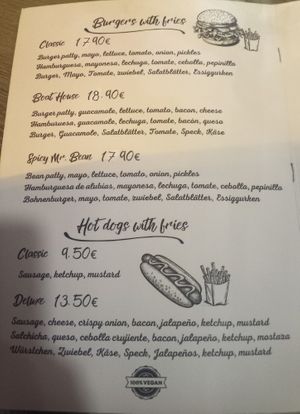 Burgers with fries
Classic 17.90€
Burger patty, mayo, lettuce, tomato, onion, pickles
Hamburguesa, mayonesa, lechuga, tomate, cebolla, pepinillo
Burger, Mayo, Tomate, zwiebel, Salatblätter, Essiggurken
Boat House 18.90€
Burger patty, guacamole, lettuce, tomato, bacon, cheese
Hamburguesa, guacamole, lechuga, tomate, bacon, queso
Burger, Guacamole, Salatblätter, Tomate, Speck, Käse
Spicy Mr. Bean 17.90€
Bean patty, mayo, lettuce, tomato, onion, pickles
Hamburguesa de alubias, mayonesa, lechuga, tomate, cebolla, pepinillo
Bohnenburger, mayo, tomate, zwiebel, Salatblätter, Essiggurken
Hot dogs with fries
Classic 9.50€
Sausage, ketchup, mustard
Deluxe 13.50€
Sausage, cheese, crispy onion, bacon, jalapeño, ketchup, mustard
Salchicha, queso, cebolla crujiente, bacon, jalapeño, ketchup, mostaza
Würstchen, Zwiebel, Käse, Speck, Jalapeños, ketchup, mustard
100% VEGAN